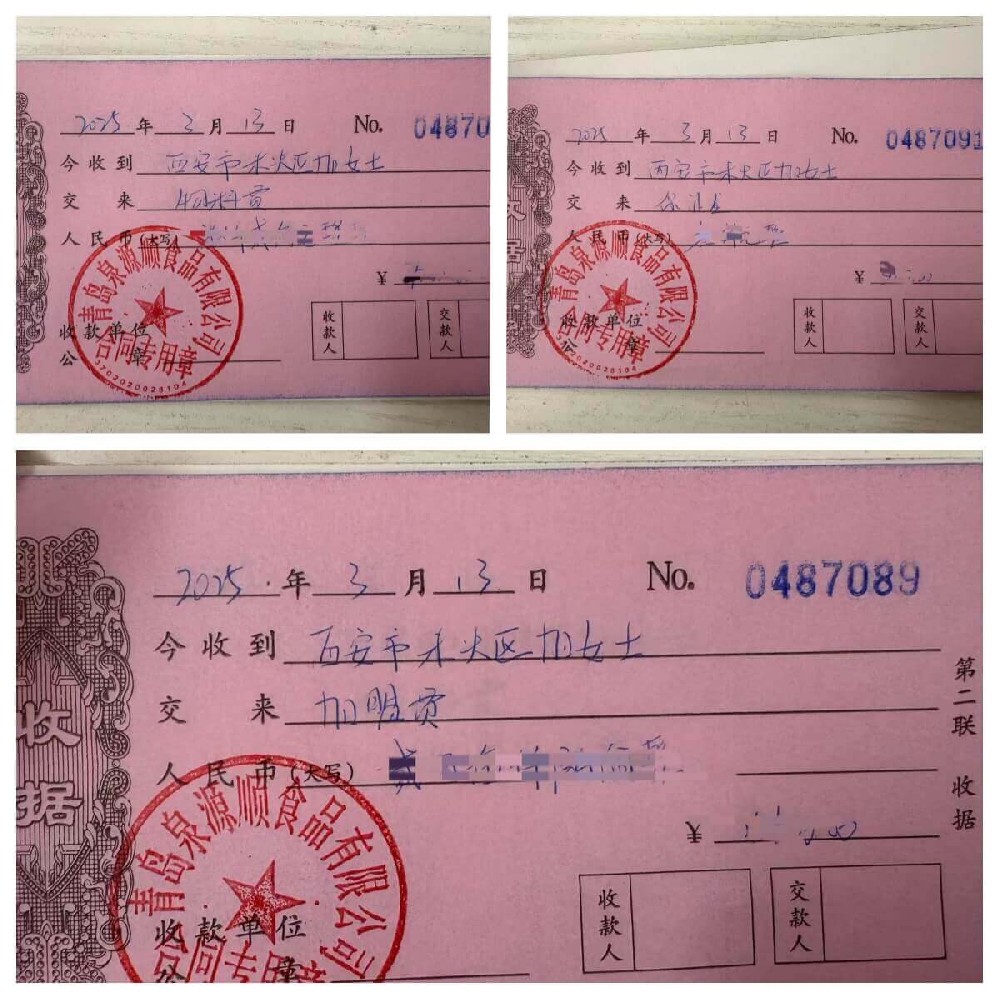 2025年3月13日 No. 04870
今收到 西安市未央区加女士
交来
人民币(大写)
¥
青岛泉源顺食品有限公司
合同专用章
3702020028104
收款单位
公章
收款人
交款人
2025年3月13日 No. 0487091
今收到 西安市未央区加女士
交来 保证金
人民币(大写)
¥
青岛泉源顺食品有限公司
合同专用章
收款单位
公章
收款人
交款人
2025.年3月13日 No. 0487089
今收到 西安市未央区加女士
交来 加盟费
人民币(大写)
¥
第二联 收据
收据
青岛泉源顺食品有限公司
合同专用章
收款单位
公章
收款人
交款人